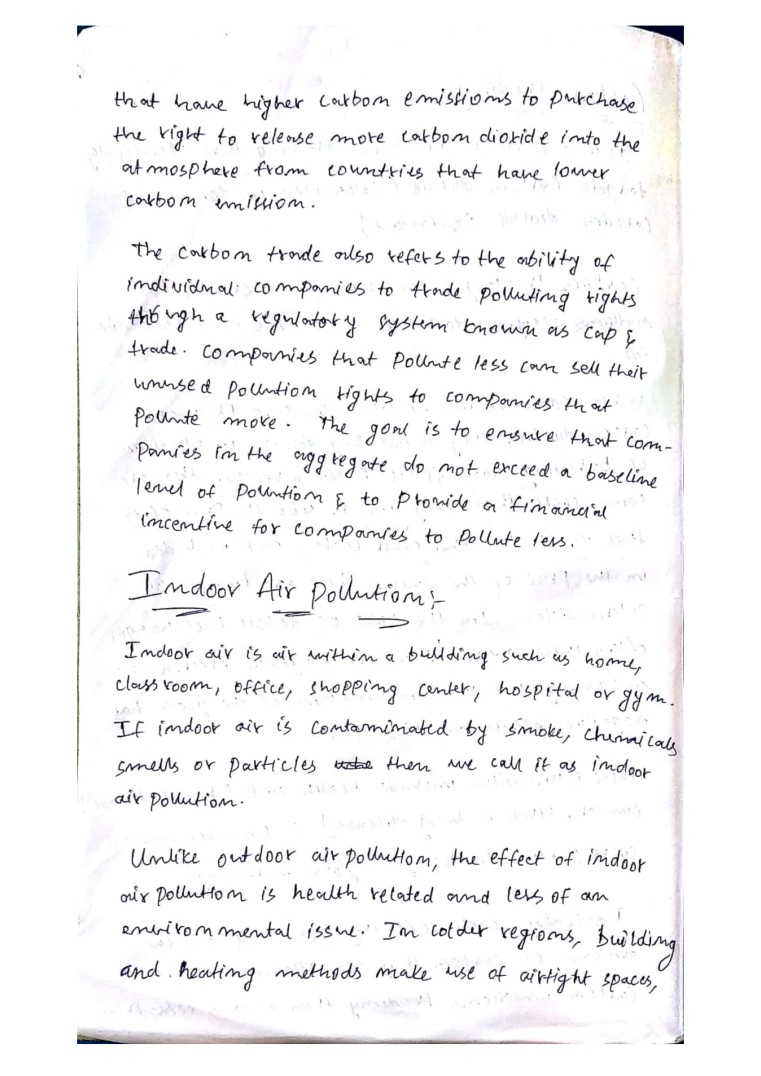 that have higher carbon emissions to purchase
the right to release more carbon dioxide into the
atmosphere from countries that have lower
carbon emission.
The carbon trade also refers to the ability of
individual companies to trade polluting rights
through a regulatory system known as cap &
trade. Companies that pollute less can sell their
unused pollution rights to companies that
pollute more. The goal is to ensure that com-
panies in the aggregate do not exceed a baseline
level of pollution & to provide a financial
incentive for companies to pollute less.
Indoor Air Pollution:-
Indoor air is air within a building such as home,
classroom, office, shopping center, hospital or gym.
If indoor air is contaminated by smoke, chemicals
smells or particles then we call it as indoor
air pollution.
Unlike outdoor air pollution, the effect of indoor
air pollution is health related and less of an
environmental issue. In colder regions, building
and heating methods make use of airtight spaces,